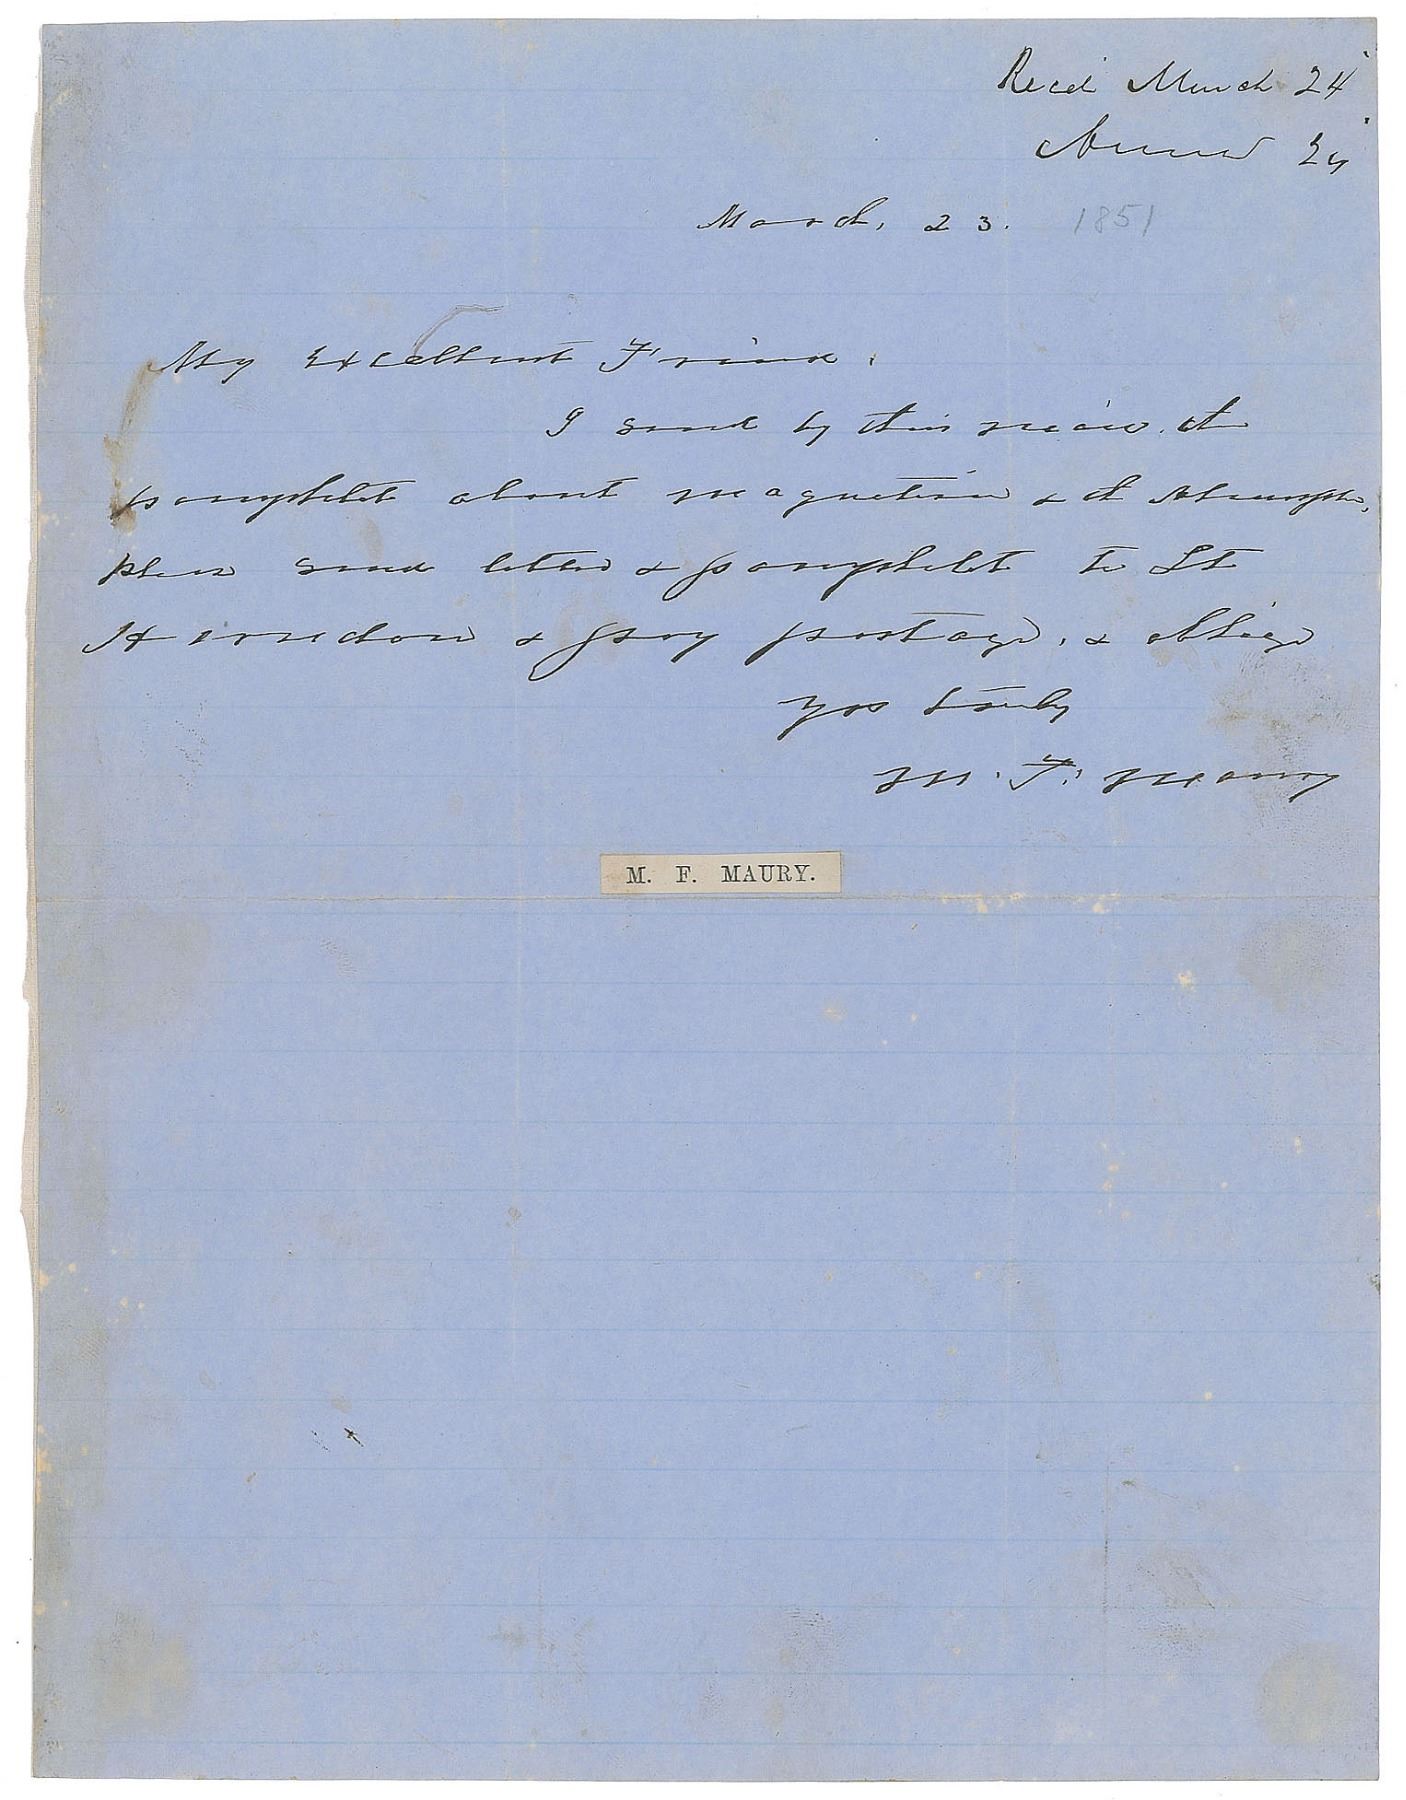 Recd March 24
Answd 24
March, 23. 1851
My Excellent Friend.
I send by this mail, the
pamphlet about magnetism & the Atmosphe,
Please send letter & pamphlet to Lt
Herndon & pay postage, & oblige
Yrs truly
M. F. Maury
M. F. MAURY.